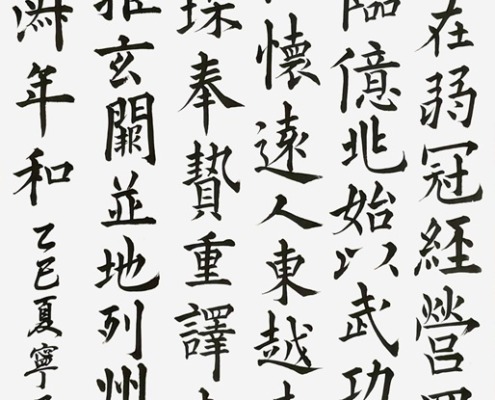 在弱冠經營四
臨億兆始以武功
懷遠人東越
琛奉贄重譯
玄闕並地列州
年和
乙巳夏寧